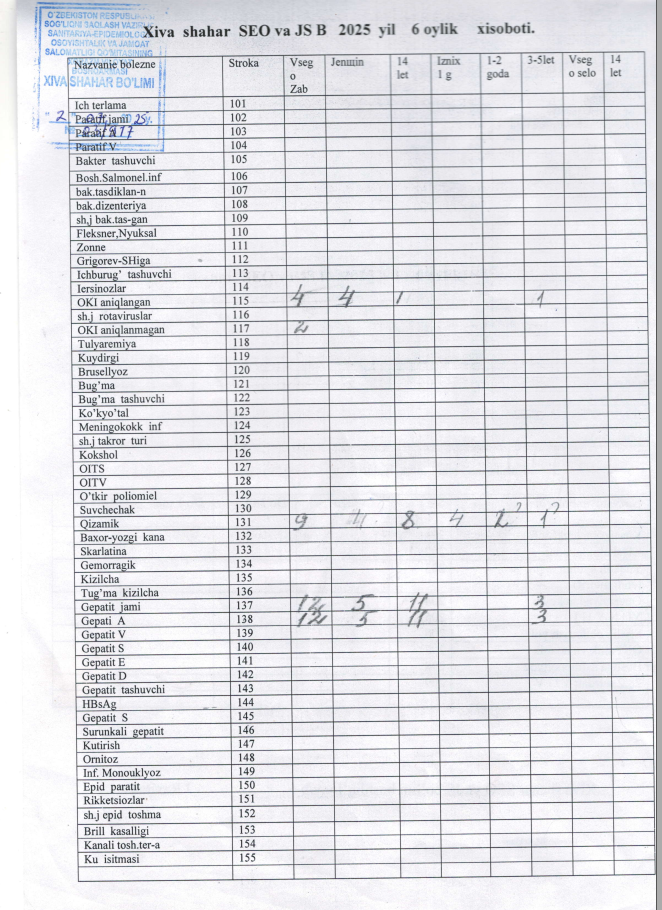 O'ZBEKISTON RESPUBLIKASI
SOG'LIQNI SAQLASH VAZIRLIGI
SANITARIYA-EPIDEMIOLOGIK
OSOYISHTALIK VA JAMOAT
SALOMATLIGI QO'MITASINING
BOSHQARMASI
XIVA SHAHAR BO'LIMI
Xiva shahar SEO va JS B 2025 yil 6 oylik xisoboti.
Nazvanie bolezne Stroka Vseg o Zab Jenmin 14 let Iznix 1 g 1-2 goda 3-5let Vseg o selo 14 let
Ich terlama 101
Paratif jami 102
Paratif A 103
Paratif V 104
Bakter tashuvchi 105
Bosh.Salmonel.inf 106
bak.tasdiklan-n 107
bak.dizenteriya 108
sh,j bak.tas-gan 109
Fleksner,Nyuksal 110
Zonne 111
Grigorev-SHiga 112
Ichburug' tashuvchi 113
Iersinozlar 114
OKI aniqlangan 115 4 4 1 1
sh.j rotaviruslar 116
OKI aniqlanmagan 117 2
Tulyaremiya 118
Kuydirgi 119
Brusellyoz 120
Bug'ma 121
Bug'ma tashuvchi 122
Ko'kyo'tal 123
Meningokokk inf 124
sh.j takror turi 125
Kokshol 126
OITS 127
OITV 128
O'tkir poliomiel 129
Suvchechak 130
Qizamik 131 9 4 8 4 2? 1?
Baxor-yozgi kana 132
Skarlatina 133
Gemorragik 134
Kizilcha 135
Tug'ma kizilcha 136
Gepatit jami 137 12 5 11 3
Gepati A 138 12 5 11 3
Gepatit V 139
Gepatit S 140
Gepatit E 141
Gepatit D 142
Gepatit tashuvchi 143
HBsAg 144
Gepatit S 145
Surunkali gepatit 146
Kutirish 147
Ornitoz 148
Inf. Monouklyoz 149
Epid paratit 150
Rikketsiozlar 151
sh.j epid toshma 152
Brill kasalligi 153
Kanali tosh.ter-a 154
Ku isitmasi 155